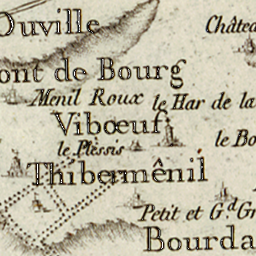 Ouville
Château
ont de Bourg
Menil Roux
le Har de la
Vibœuf
le Plessis
le Bo
Thibermênil
Petit et G.d Gr
Bourda